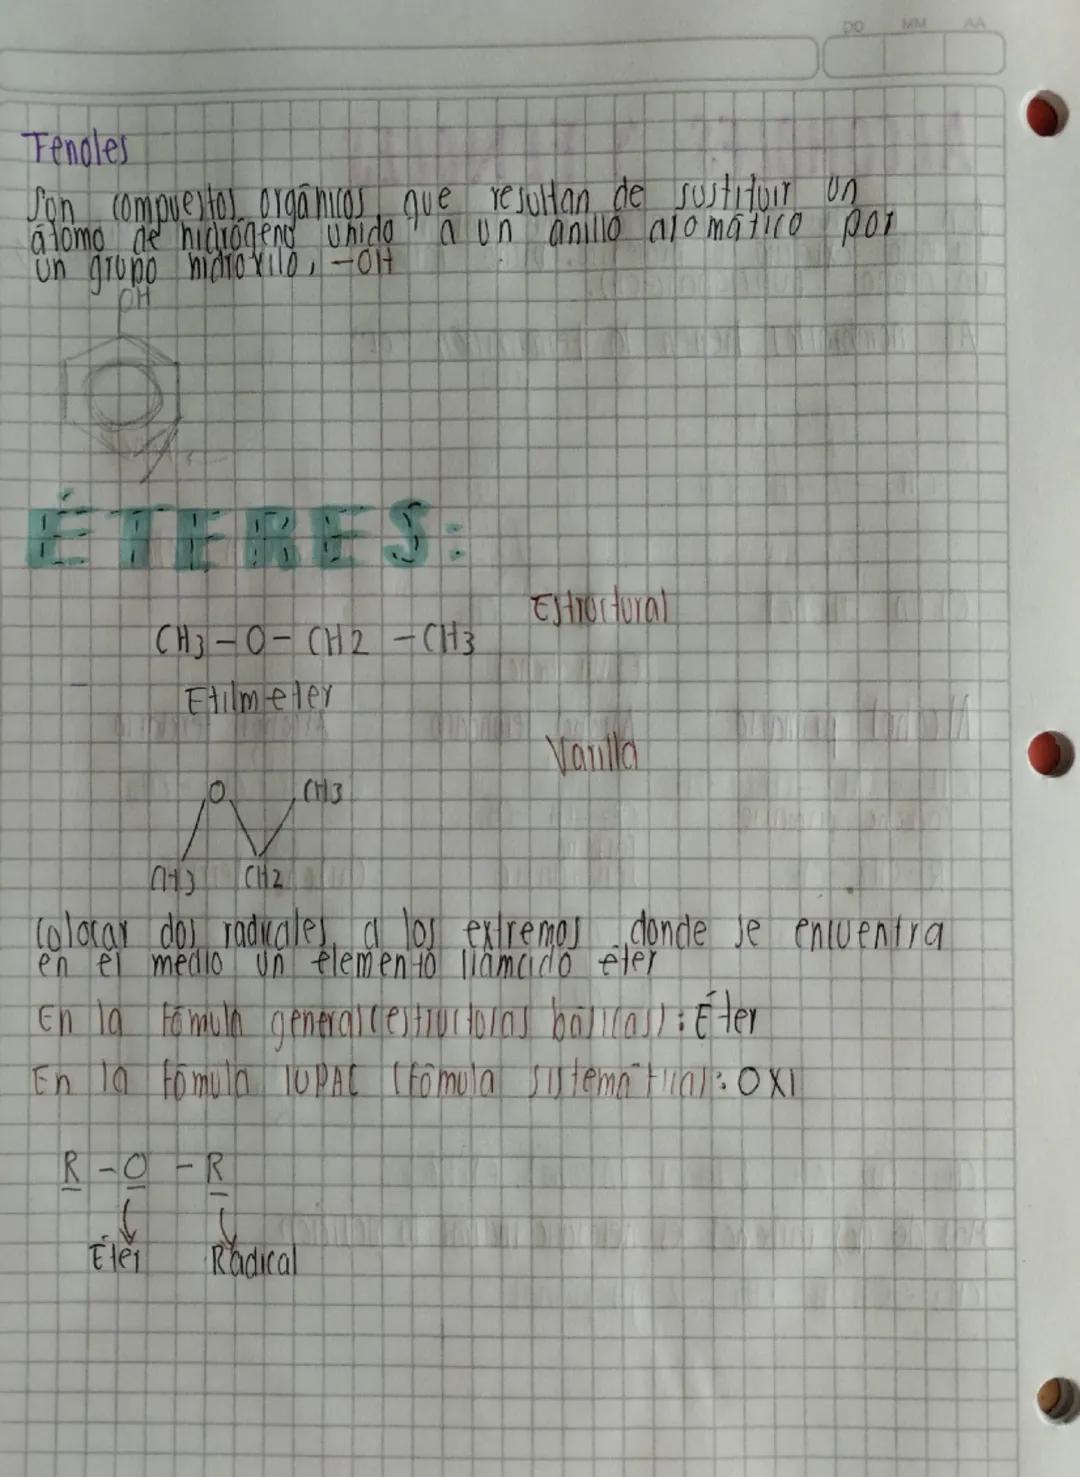 DD MM AA
Fenoles
Son compuestos orgánicos que resultan de sustituir un
átomo de hidrógeno unido a un anillo aromático por
un grupo hidroxilo, -OH
OH
ÉTERES:
Estructural
CH3-O-CH2-CH3
Etilmeter
Varilla
O CH3
CH3 CH2
Colocar dos radicales a los extremos donde se encuentra
en el medio un elemento llamado eter
En la fómula general (estructuras básicas): Éter
En la fómula IUPAC (fómula sistemática): OXI
R-O-R
Éter Radical